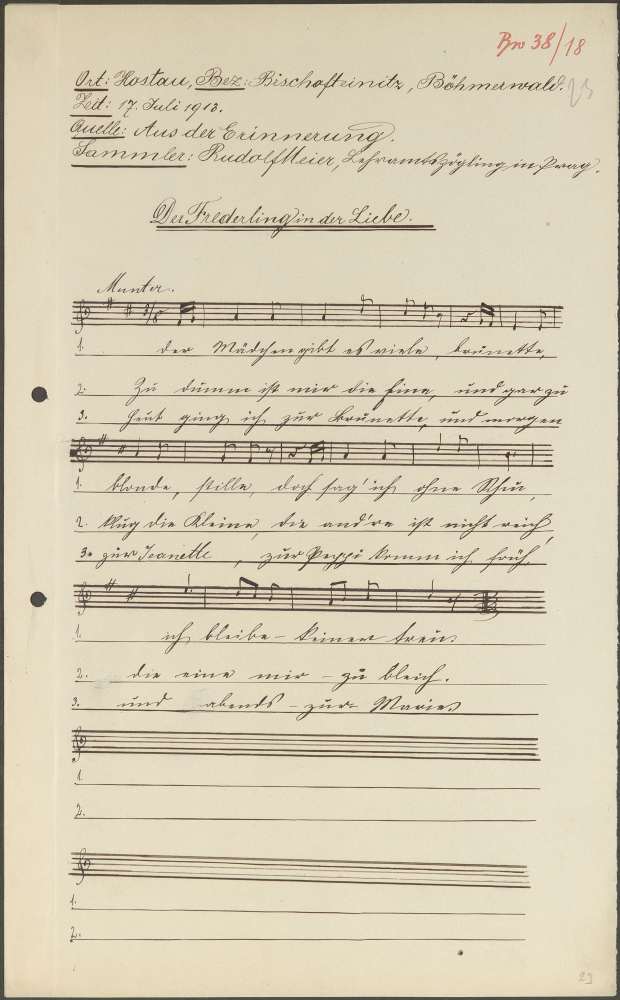 Bw 38/18
Ort: Hostau, Bez: Bischofteinitz, Böhmerwald.
23
Zeit: 17. Juli 1913.
Quelle: Aus der Erinnerung.
Sammler: Rudolf Meier, Lehramtszögling in Prag.
Der Frederling in der Liebe.
Munter.
3/8
1. der Mädchen gibt es viele, brünette,
2. Zu dumm ist mir die Eine, und gar zu
3. Heut ging ich zur Brünette, und morgen
1. blonde, stille, doch sag' ich ohne Scheu,
2. klug die Kleine, die and're ist nicht reich
3. zur Jeanette, zur Peppi komm ich früh,
1. ich bleibe - keiner treu.
2. die eine mir - zu bleich.
3. und abends - zur Marie.
1.
2.
1.
2.
23